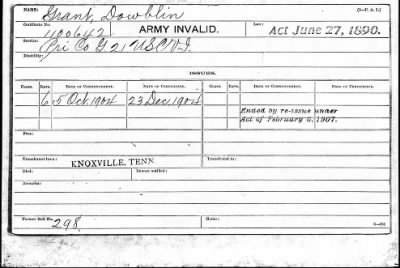 NAME: Grant, Dowblin (3-P. A. I.)
Certificate No. 1100642 ARMY INVALID. Law: Act June 27, 1890.
Service: Pri Co G. 21 USCV.I.
Disability:
ISSUES.
CLASS. RATE. DATE OF COMMENCEMENT. DATE OF CERTIFICATE. CLASS. RATE. DATE OF COMMENCEMENT. DATE OF CERTIFICATE.
6 5 Oct. 1904 23 Dec. 1904
Ended by re-issue under
Act of February 6, 1907.
Fees:
Transferred from: KNOXVILLE, TENN. Transferred to:
Died: Bureau notified:
Remarks:
Former Roll No. 298. Home: